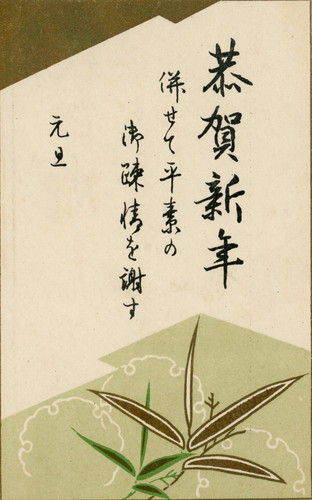 恭賀新年
併せて平素の
御疎情を謝す
元旦